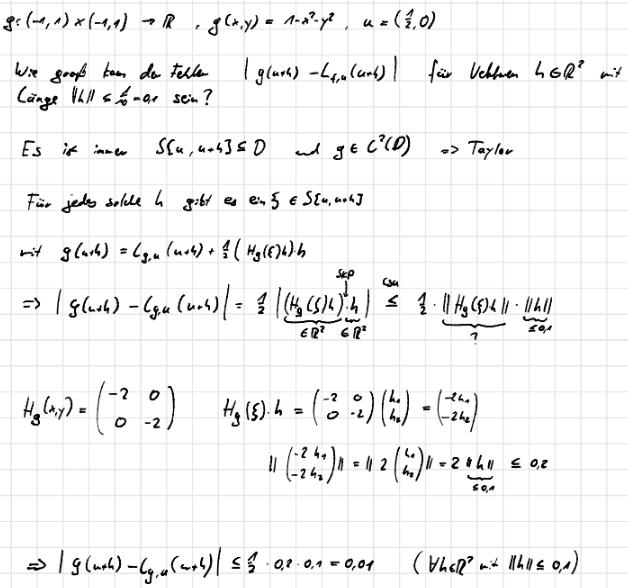 g: (-1,1) × (-1,1) → ℝ , g(x,y) = 1-x²-y² , u = (1/2, 0)
Wie groß kann der Fehler | g(u+h) - L_{f,u}(u+h) | für Vektoren h ∈ ℝ² mit
Länge ‖h‖ ≤ 1/10 = 0,1 sein?
Es ist immer S[u, u+h] ⊆ D und g ∈ C²(D) => Taylor
Für jedes solche h gibt es ein ξ ∈ S[u, u+h]
mit g(u+h) = L_{g,u}(u+h) + 1/2 (H_g(ξ)h)·h
=> | g(u+h) - L_{g,u}(u+h) | = 1/2 | (H_g(ξ)h) · h | ≤ 1/2 · ‖H_g(ξ)h‖ · ‖h‖
SKP CSU
∈ℝ² ∈ℝ² ? ≤0,1
H_g(x,y) = ( -2 0 ; 0 -2 ) H_g(ξ)·h = ( -2 0 ; 0 -2 ) ( h₁ ; h₂ ) = ( -2h₁ ; -2h₂ )
‖ ( -2h₁ ; -2h₂ ) ‖ = ‖ 2 ( h₁ ; h₂ ) ‖ = 2 ‖h‖ ≤ 0,2
≤0,1
=> | g(u+h) - L_{g,u}(u+h) | ≤ 1/2 · 0,2 · 0,1 = 0,01 (∀h∈ℝ² mit ‖h‖ ≤ 0,1)